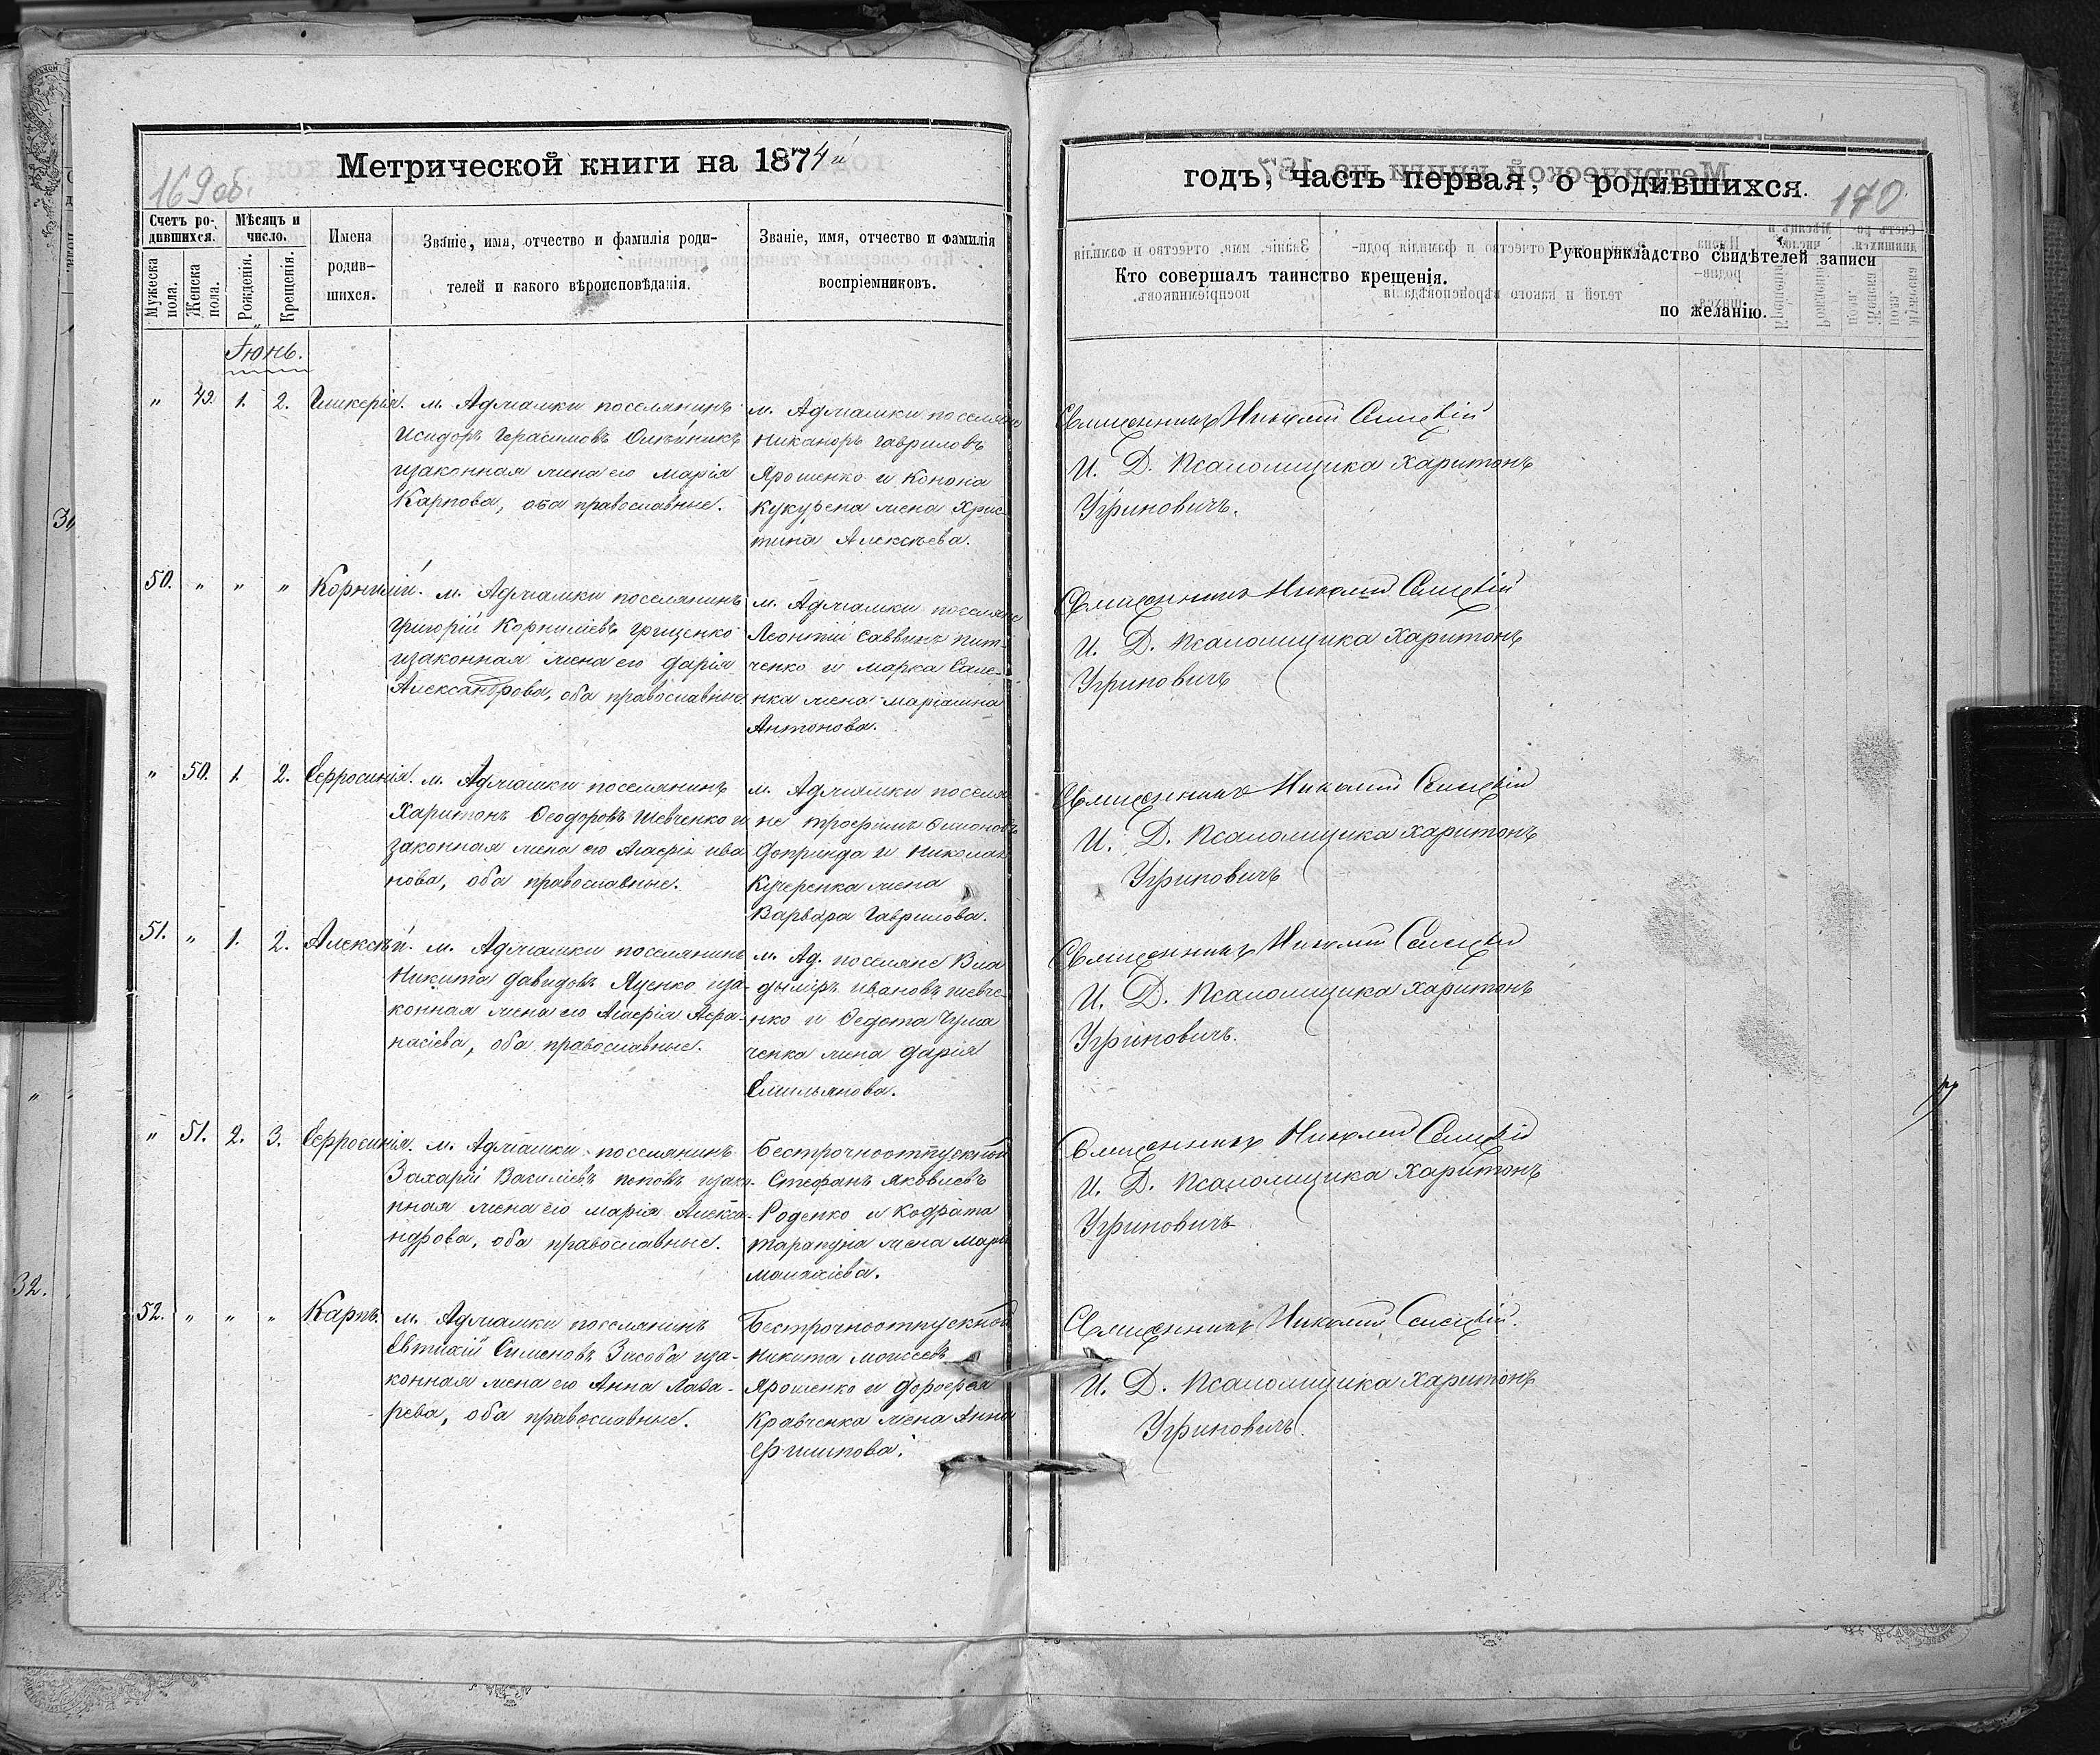 169 об.
Метрической книги на 1874й
Счетъ ро-
дившихся.
Мѣсяцъ и
число.
Мужеска
пола.
Женска
пола.
Рожденія.
Крещенія.
Имена
родив-
шихся.
Званіе, имя, отчество и фамилія роди-
телей и какого вѣроисповѣданія.
Званіе, имя, отчество и фамилія
воспріемниковъ.
Іюнь.
" 49. 1. 2. Гликерія.
м. Аджамки поселянинъ
Исидоръ Герасимовъ Олѣйникъ
изаконная жена его Марія
Карпова, оба православные.
м. Аджамки поселяне
Никаноръ Гавриловъ
Ярошенко и Конона
жена Хрис-
тина Алексѣева.
50. " " " Корнилій.
м. Аджамки поселянинъ
Григорій Корниліевъ Грищенко
изаконная жена его Дарія
Александрова, оба православные.
м. Аджамки поселяне
Леонтій Саввинъ
ченко и Марка
нка жена Маріамна
Антонова.
" 50. 1. 2. Евфросинія.
м. Аджамки поселянинъ
Харитонъ Ѳеодоровъ Шевченко и
законная жена его Агафія Ива
нова, оба православные.
м. Аджамки поселя
не Трофимъ
и Николая
Кучеренка жена
Варвара Гаврилова.
51. " 1. 2. Алексѣй.
м. Аджамки поселянинъ
Никита Давидовъ Яценко иза-
конная жена его Агафія Афа-
насіева, оба православные.
м. Ад. поселяне Вла
димиръ Ивановъ Шевче-
нко и Ѳедота Чума
ченка жена Дарія
Емильянова.
" 51. 2. 3. Евфросинія.
м. Аджамки поселянинъ
Захарій Василіевъ Поповъ изако-
нная жена его Марія Алекса-
ндрова, оба православные.
Безсрочноотпускной
Стефанъ Яковлевъ
Роденко и Кодрата
Тарапуна жена Марія
52. " " " Карпъ.
м. Аджамки поселянинъ
Евтихій Симеоновъ Засоба иза-
конная жена его Анна Лаза-
рева, оба православные.
Безсрочноотпускной
Никита Моисеевъ
Ярошенко и Дорофея
Кравченка жена Анна
Филипова.
годъ, часть первая, о родившихся.
170
Кто совершалъ таинство крещенія.
Рукоприкладство свидѣтелей записи
по желанію.
Священникъ Николай
И. Д. Псаломщика Харитонъ
Угриновичъ.
Священникъ Николай
И. Д. Псаломщика Харитонъ
Угриновичъ
Священникъ Николай
И. Д. Псаломщика Харитонъ
Угриновичъ
Священникъ Николай
И. Д. Псаломщика Харитонъ
Угриновичъ.
Священникъ Николай
И. Д. Псаломщика Харитонъ
Угриновичъ
Священникъ Николай
И. Д. Псаломщика Харитонъ
Угриновичъ.
32.